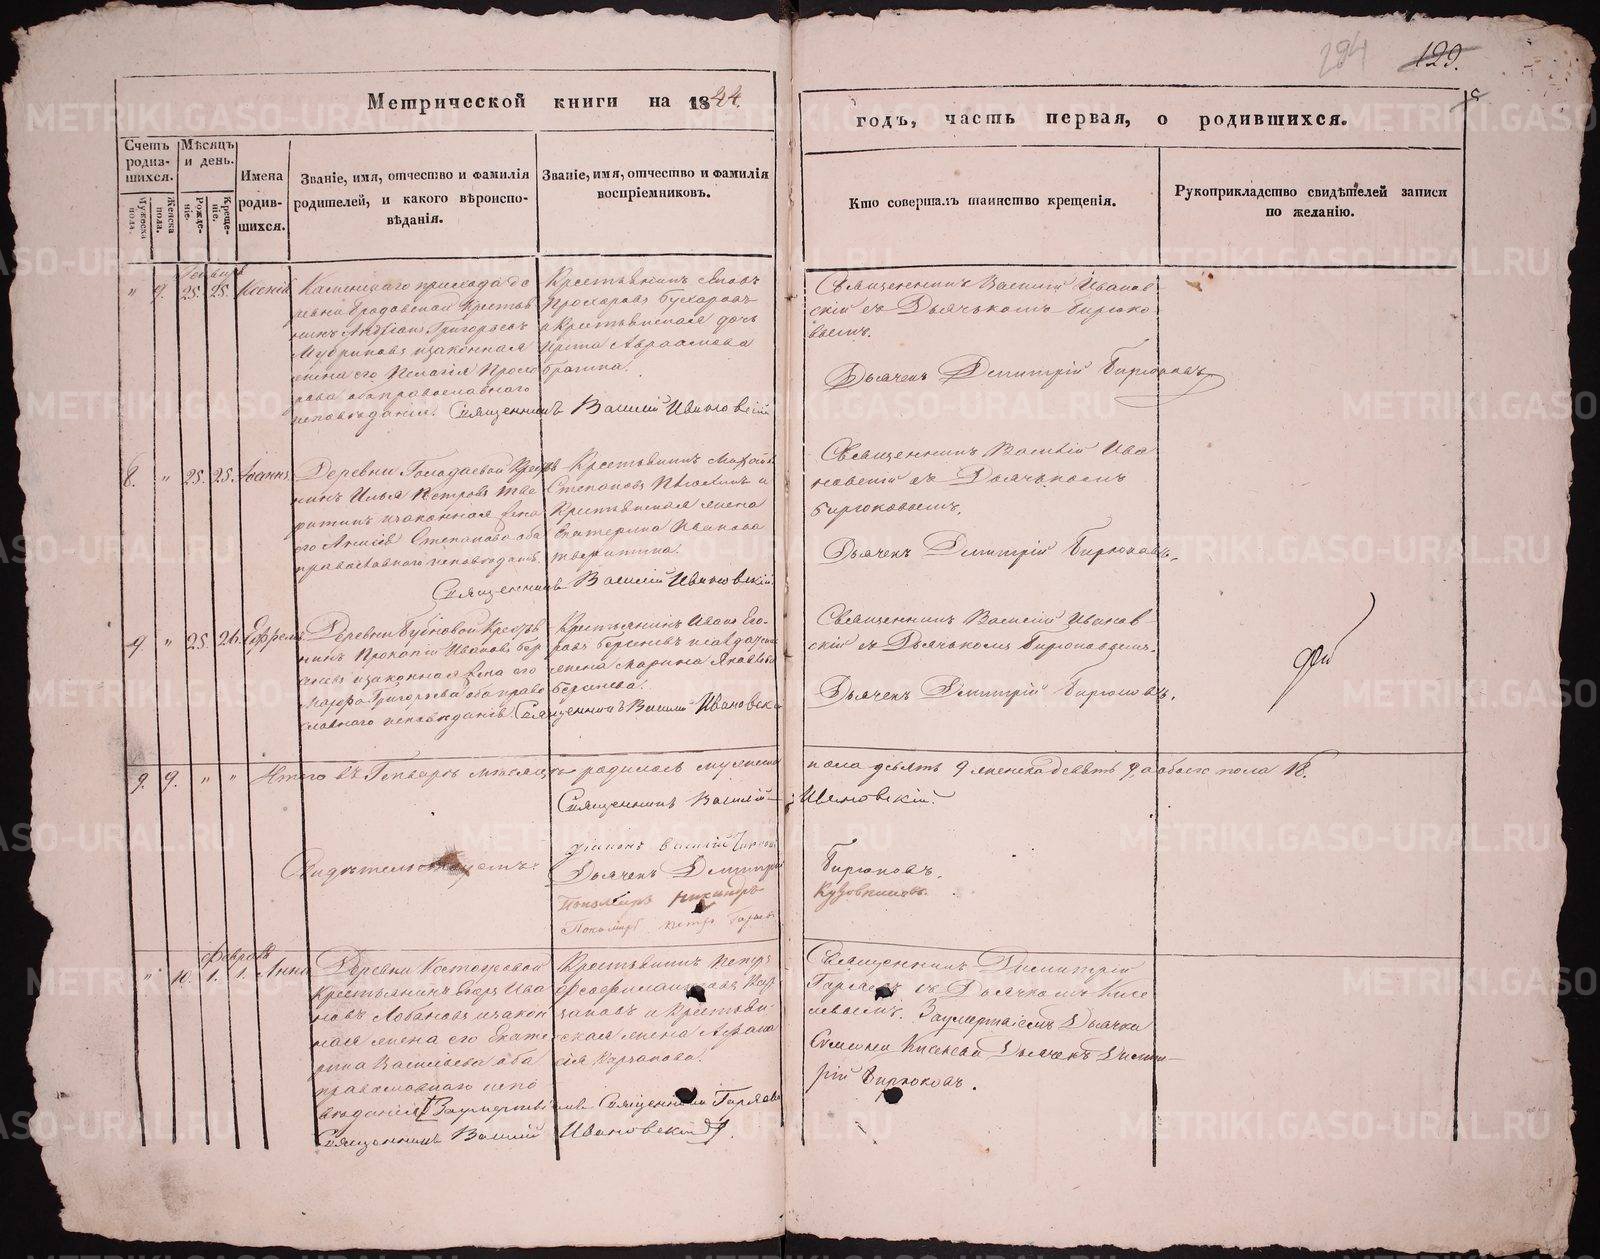 294 129.
Метрической книги на 1844.
годъ, часть первая, о родившихся.
Счетъ родившихся.
Мужеска пола.
Женска пола.
Мѣсяцъ и день.
Рожденіе.
Крещеніе.
Имена родившихся.
Званіе, имя, отчество и фамилія
родителей, и какого вѣроиспо-
вѣданія.
Званіе, имя, отчество и фамилія
воспріемниковъ.
Кто совершалъ таинство крещенія.
Рукоприкладство свидѣтелей записи
по желанію.
" 9. 25. 25. Ксенія
Каменскаго прихода де
ревни Бродовской Крестья
нинъ Григорьевъ
изаконная
жена его Пелагія Прохо
рова оба православнаго
исповѣданія. Священникъ Василій Ивановскій
Крестьянинъ
Прохоровъ Бухаровъ
и Крестьянская дочь
Авраамова
Священникъ Василій Иванов
скій съ Дьячькомъ Бирюко
вымъ.
Дьячекъ Дмитрій Бирюковъ
8. " 25. 25. Іоаннъ
Деревни Голодаевой Крестья
нинъ Илья Петровъ Тве
ритинъ изаконная жена
его Анисія Степанова оба
православнаго исповѣданія.
Крестьянинъ
Степановъ и
Крестьянская жена
Екатерина Иванова
Тверитина.
Священникъ Василій Ивановскій
Священникъ Василій Ива
новскій съ Дьячькомъ
Бирюковымъ.
Дьячекъ Дмитрій Бирюковъ.
9 " 25. 26. Ефремъ
Деревни Бубновой Крестья
нинъ Прокопій Ивановъ Бер
сеневъ изаконная жена его
Марфа Григорьева оба право
славнаго исповѣданія Священникъ Василій Ивановскій
Крестьянинъ Иванъ Его
ровъ Берсеневъ
жена Марина Яковлева
Берсенева.
Священникъ Василій Иванов
скій съ Дьячькомъ Бирюковымъ.
Дьячекъ Дмитрій Бирюковъ.
9. 9. " " Итого въ Генварѣ мѣсяцѣ родилось мужеска пола девять 9 женска девять 9 а обоего пола 18.
Священникъ Василій Ивановскій.
Свидѣтельствуемъ:
Діаконъ Василій
Дьячекъ Дмитрій Бирюковъ.
Пономарь Никандръ Кузовниковъ.
Пономарь Петръ
Февраль
" 10. 1. 1. Анна
Деревни Костоусовой
Крестьянинъ Егоръ Ива
новъ Лобановъ изакон
ная жена его Екате
рина Васильева оба
православнаго испо
вѣданія [Засмертію Священника Гаряева
Священникъ Василій Ивановскій].
Крестьянинъ Петръ
Феофилактовъ
и Крестьян
ская жена Афана
сія
Священникъ Димитрій
Гаряевъ съ Дьячкомъ Кисе
левымъ. Засмертіемъ Дьячка
Симеона Киселева Дьячекъ Димит
рій Бирюковъ.